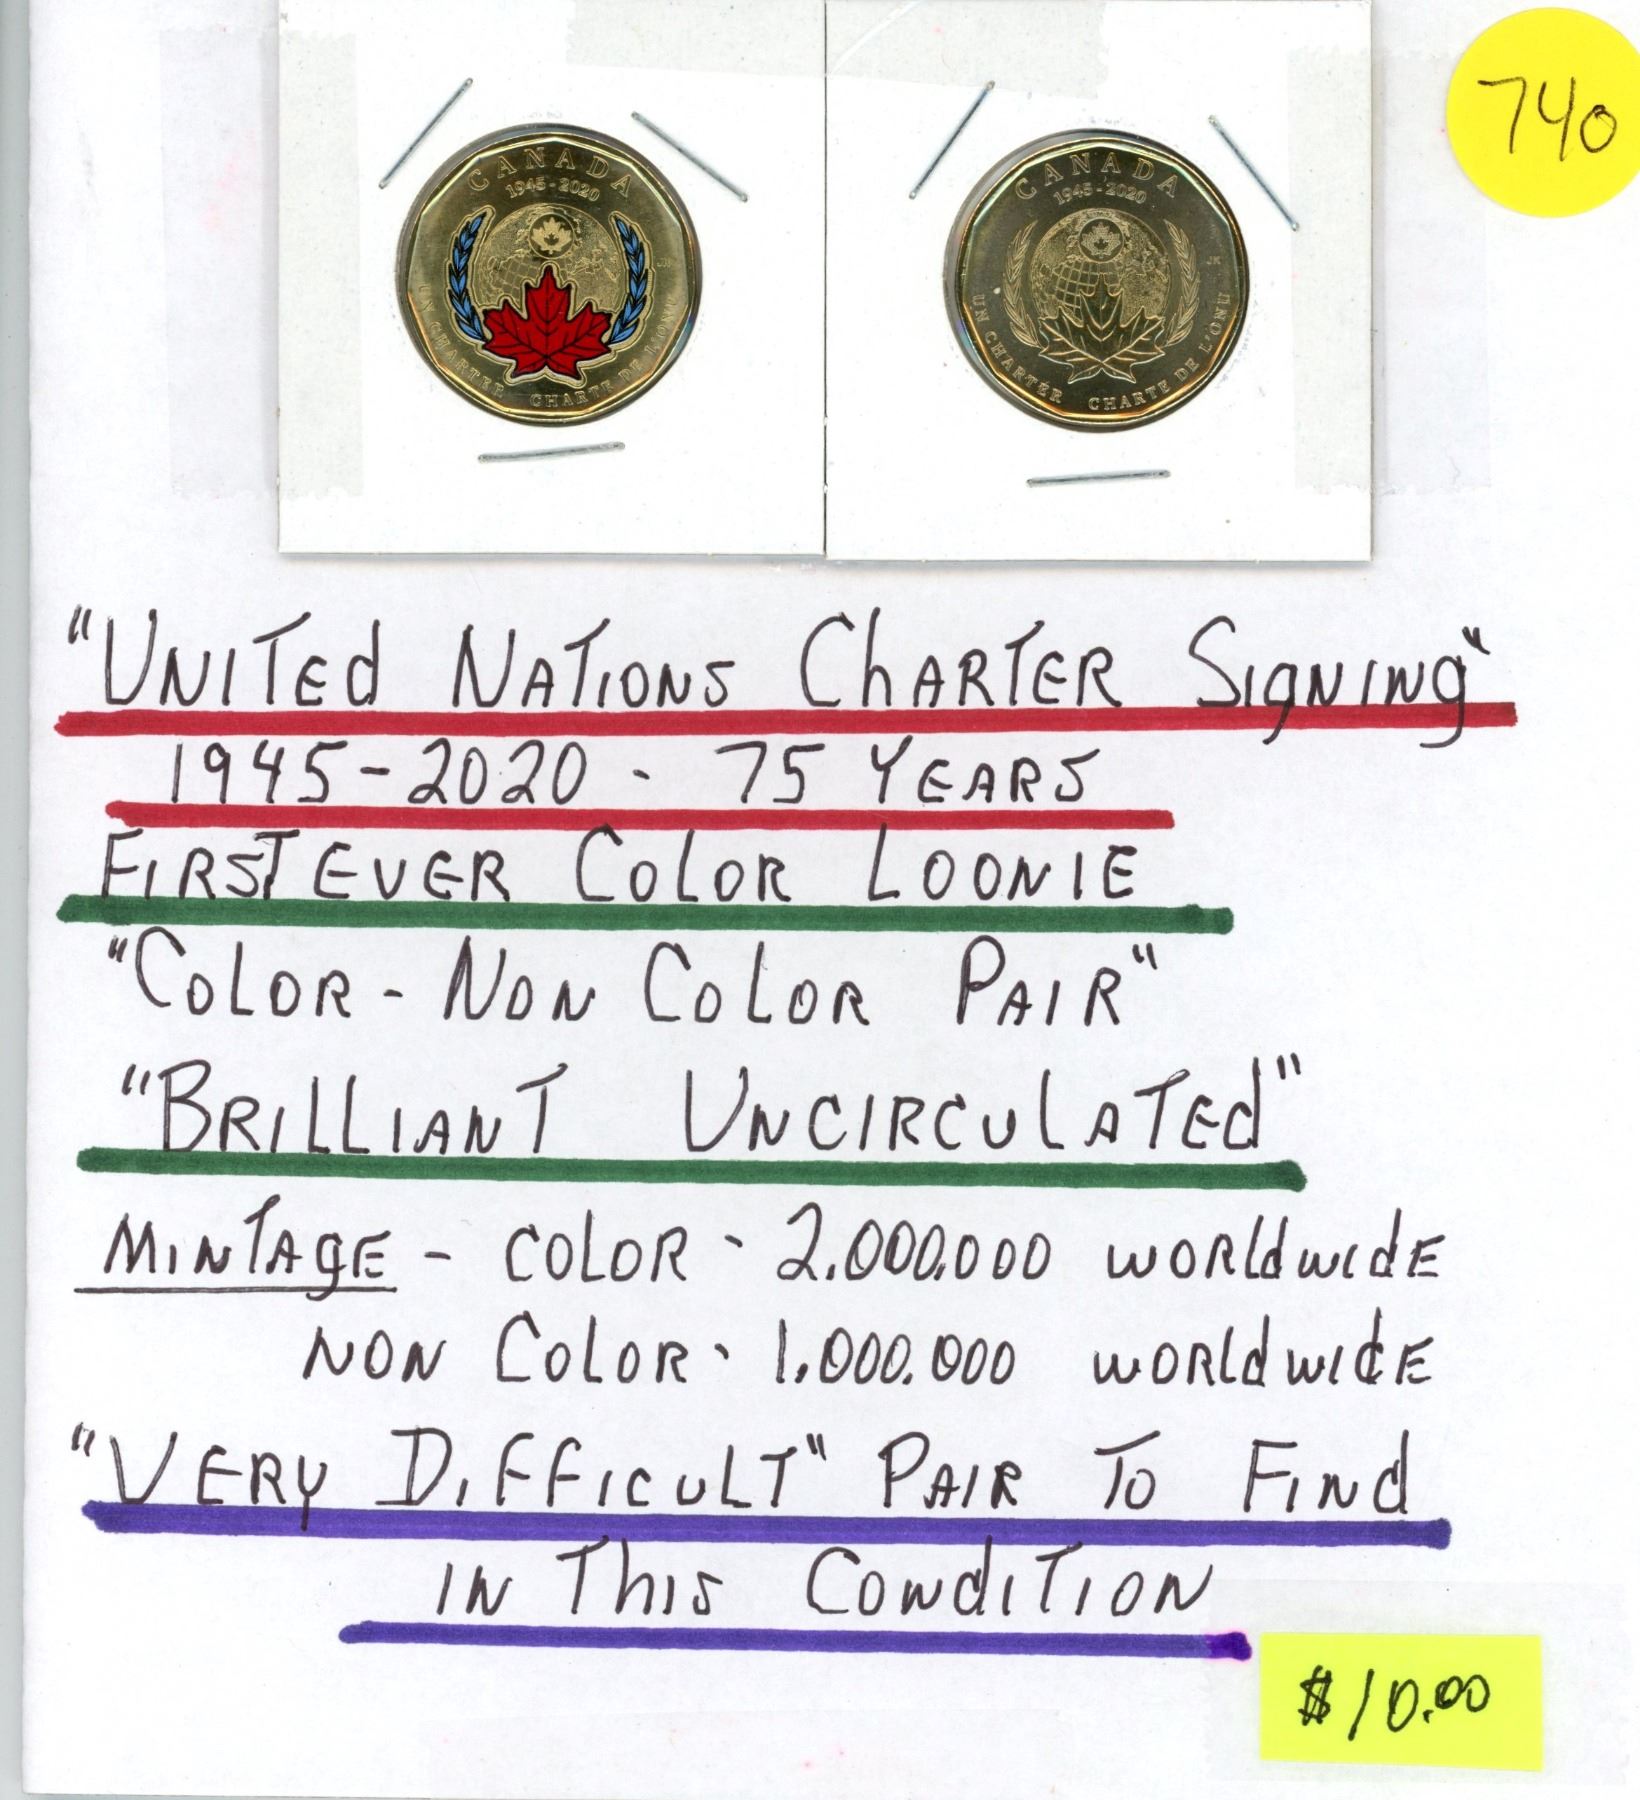 740
CANADA
1945-2020
UN CHARTER CHARTE DE L'ONU
CANADA
1945-2020
JK
UN CHARTER CHARTE DE L'ONU
"UNITEd NATIONS ChARTER SIgNINg"
1945-2020 - 75 YEARS
FIRST EVER COlOR LOONIE
"COLOR - NON COLOR PAIR"
"BRILLIANT UNCIRCULATEd"
MINTAgE - COLOR - 2,000,000 WORldwIdE
NON COLOR - 1,000,000 WORldwIdE
"VERY DIFFICULT" PAIR TO FINd
IN ThIS CONdITION
$10.00